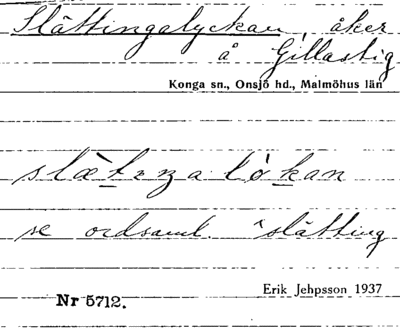 Slättingalyckan, åker
å Gillastig
Konga sn., Onsjö hd., Malmöhus län
slætıŋa lỳkan
se ordsaml. slätting
Erik Jehpsson 1937
Nr 5712.